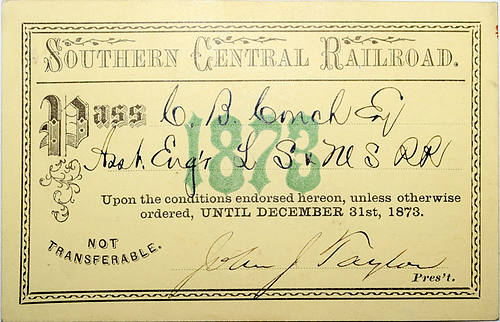 SOUTHERN CENTRAL RAILROAD.
Pass C. B. Couch Esq
1873
Asst. Eng'r L S & M S RR
Upon the conditions endorsed hereon, unless otherwise
ordered, UNTIL DECEMBER 31st, 1873.
NOT
TRANSFERABLE.
John J Taylor
Pres't.